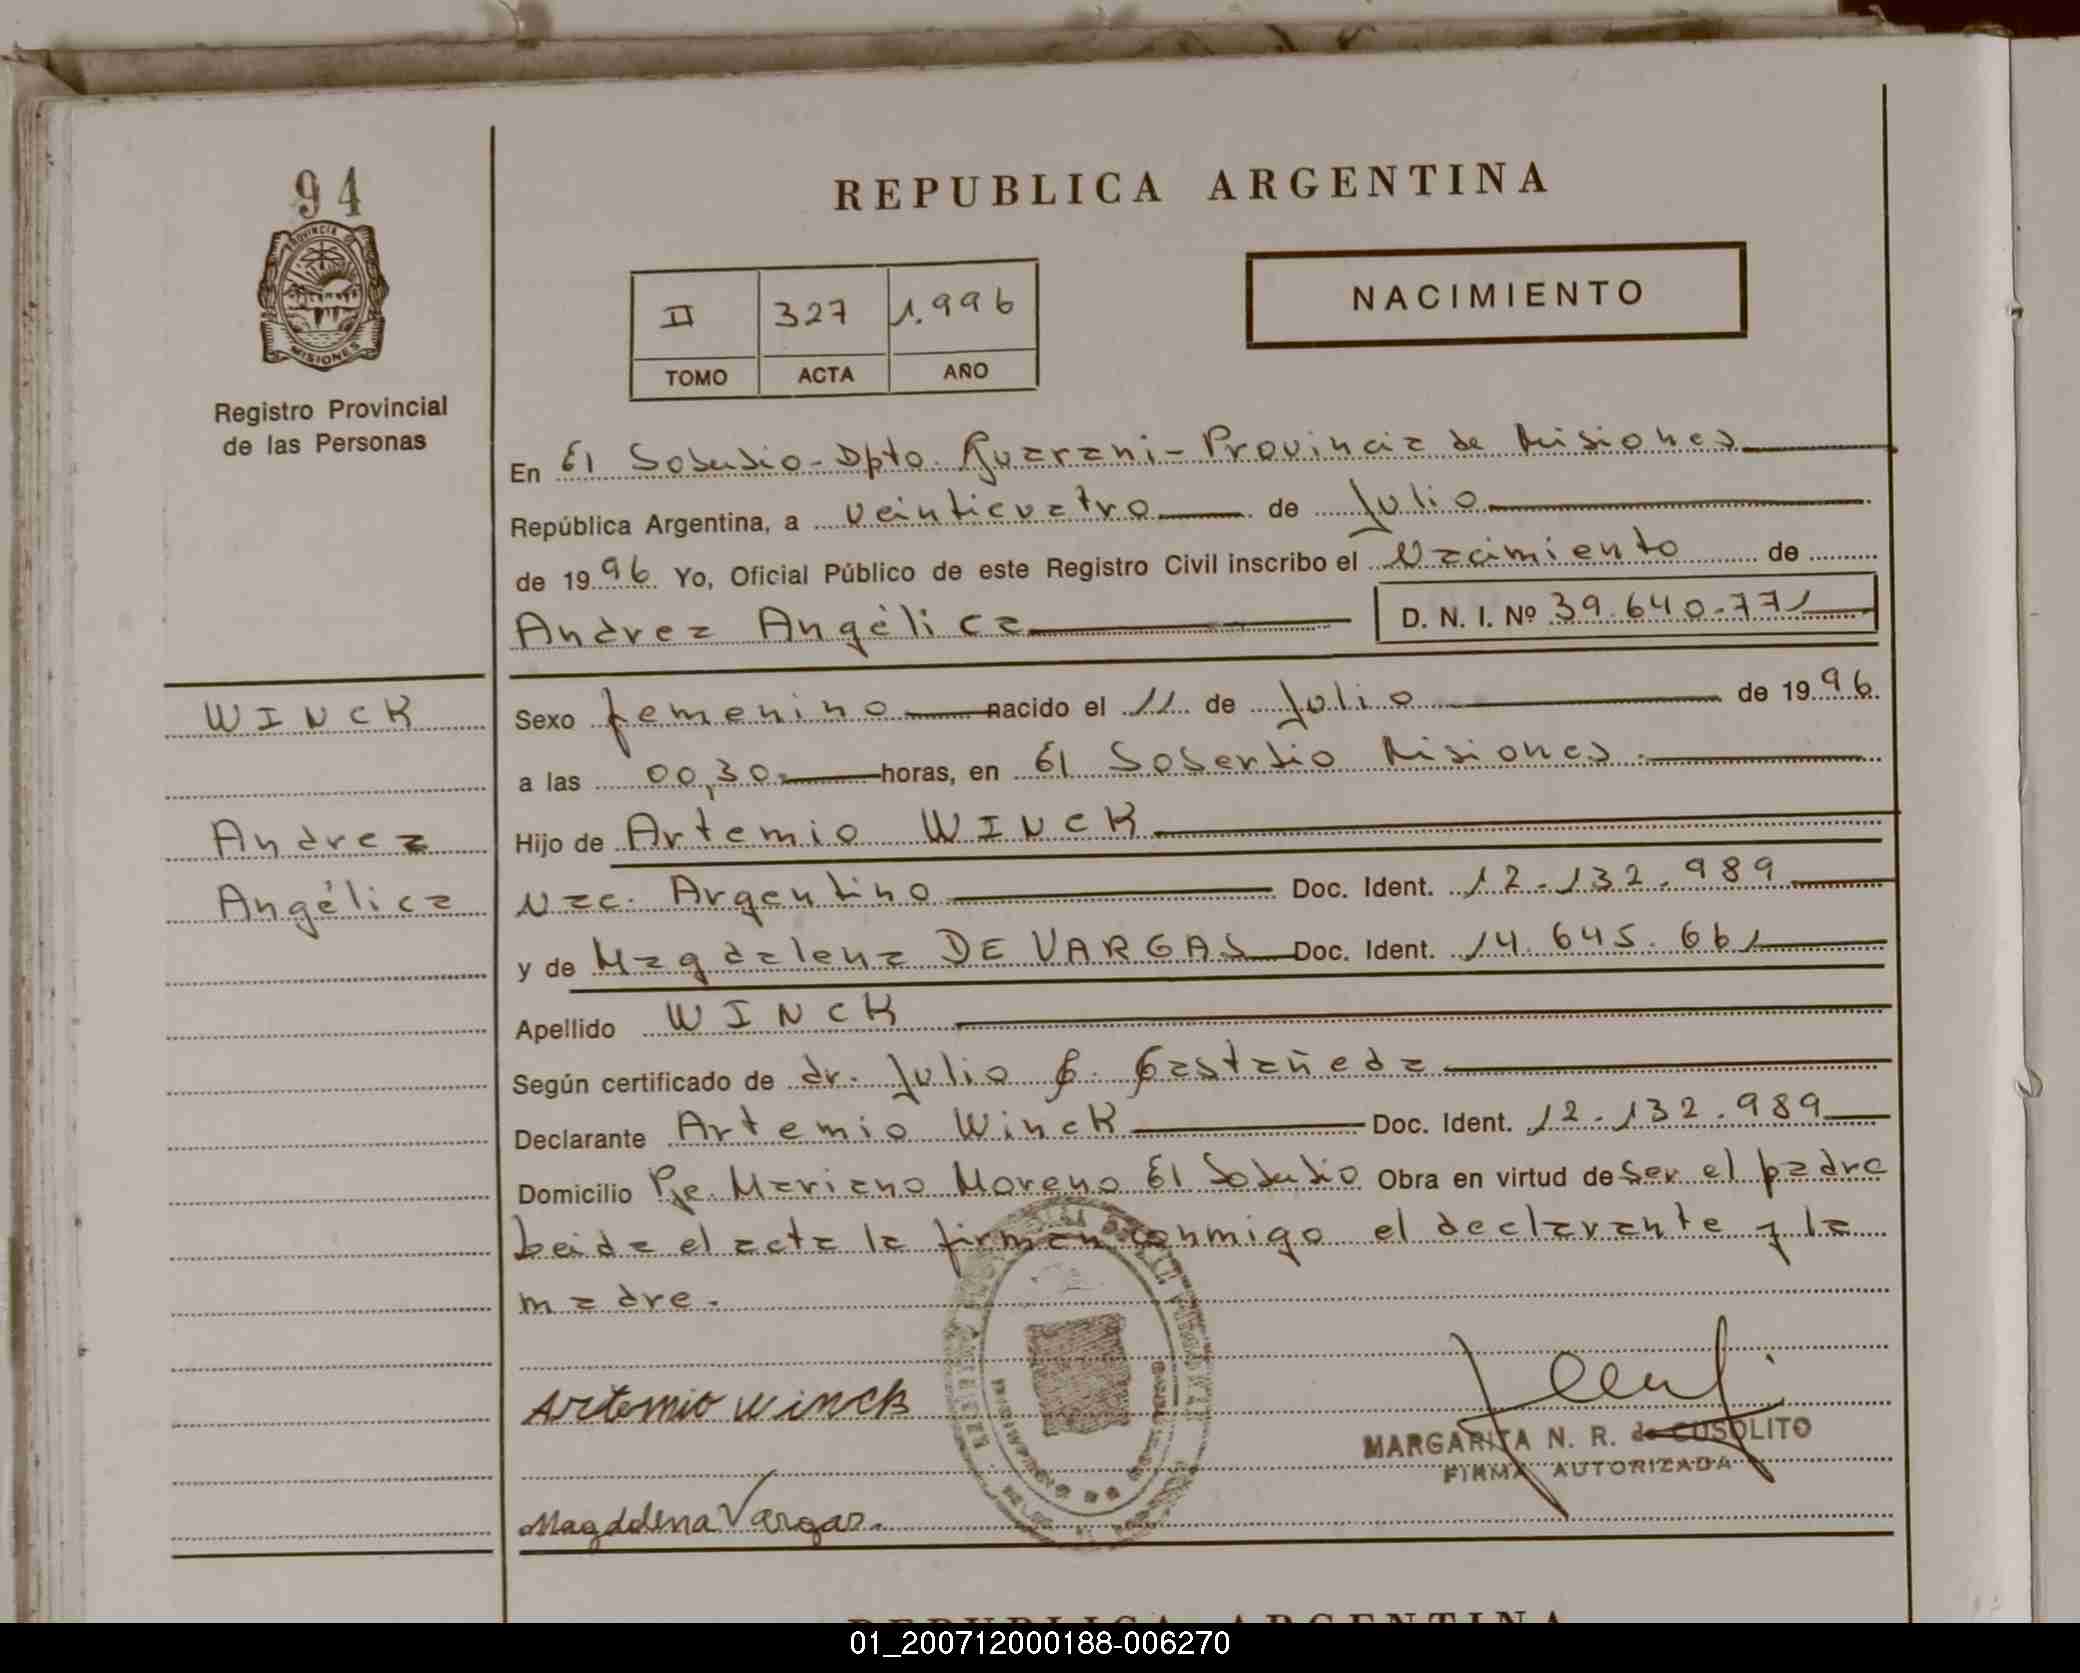 94
PROVINCIA DE
MISIONES
Registro Provincial
de las Personas
REPUBLICA ARGENTINA
II 327 1.996
TOMO ACTA AÑO
NACIMIENTO
En El Soberbio - Dpto. Guarani - Provincia de Misiones
República Argentina, a veinticuatro de Julio
de 1996 Yo, Oficial Público de este Registro Civil inscribo el Nacimiento de
Andrea Angélica D. N. I. Nº 39.640.771
WINCK
Andrea
Angélica
Sexo femenino nacido el 11 de Julio de 1996
a las 00,30 horas, en El Soberbio Misiones
Hijo de Artemio WINCK
Nac. Argentino Doc. Ident. 12.132.989
y de Magdalena DE VARGAS Doc. Ident. 14.645.661
Apellido WINCK
Según certificado de dr. Julio C. Castañeda
Declarante Artemio Winck Doc. Ident. 12.132.989
Domicilio Pje. Mariano Moreno El Soberbio Obra en virtud de ser el padre
Leida el acta la firman conmigo el declarante y la
madre.
Artemio Winck
MARGARITA N. R. de CUSOLITO
FIRMA AUTORIZADA
Magdalena Vargas.
REPUBLICA ARGENTINA
01_200712000188-006270